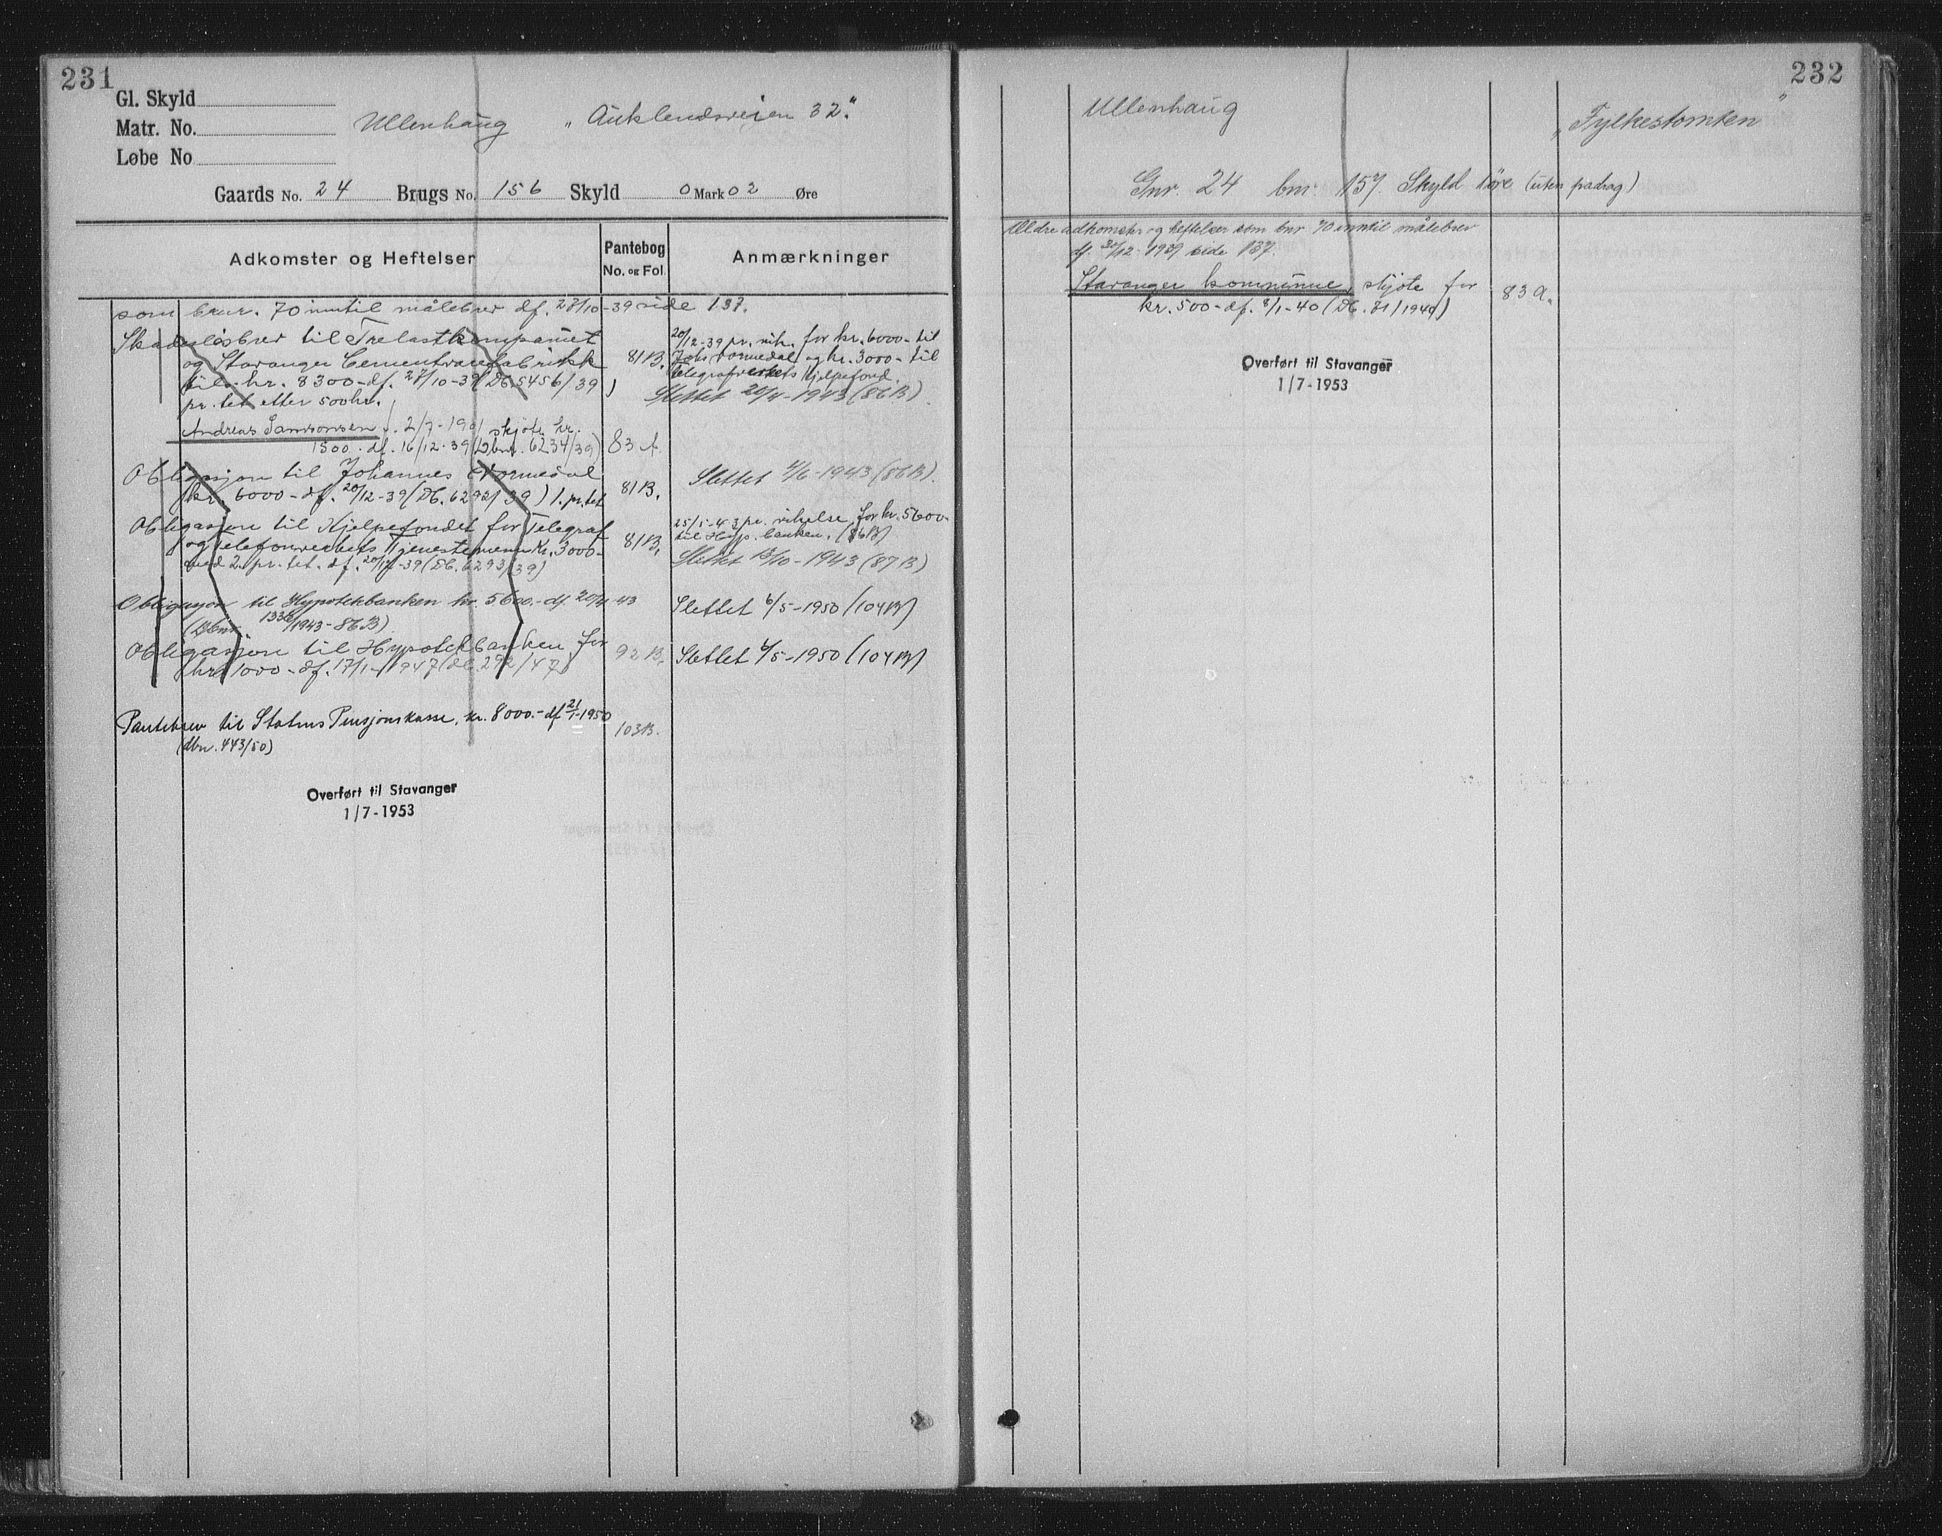 231
Gl. Skyld
Matr. No.
Løbe No
Ullenhaug „Auklendsveien 32."
Gaards No. 24 Brugs No. 156 Skyld 0 Mark 02 Øre
Adkomster og Heftelser
Pantebog
No. og Fol.
Anmærkninger
som bnr. 70 inntil målebrev df. 27/10-39 side 137.
Skadesløsbrev til Trelastkompaniet
og Stavanger Cementvarefabrikk
kr. 8300-df. 27/10-39 (Db. 5456/39)
pr. tet etter 500 kr.
81B.
20/12-39 pr. vik. for kr. 6000- til
Johs Normedal og kr. 3000- til
telegrafverkets hjelpefond.
Slettet 20/4-1943 (86B).
Andreas Samsonsen f. 2/7-1901 skjøte kr.
1500.- df. 16/12-39 (Dbnr. 6234/39)
83A
Obligasjon til Johannes Normedal
kr. 6000-df. 20/12-39 (Db. 6292/39) 1. pr. tet
81B.
Slettet 4/6-1943 (86B).
Obligasjon til Hjelpefondet for Telegraf
og Telefonverkets Tjenestemenn Kr. 3000-
med 2. pr. tet. df. 20/12-39 (Db. 6293/39)
81B.
25/5-43 pr. vikelse for kr. 5600-
til Hyp. banken. (86B)
Slettet 13/10-1943 (87B)
Obligasjon til Hypotekbanken kr. 5600.- df. 20/4 43
(Dbnr. 1336/1943-86B).
Slettet 6/5-1950 (104B)
Obligasjon til Hypotekbanken for
kr. 1000-df. 17/1-1947 (db. 292/47)
92B.
Slettet 6/5-1950 (104B)
Pantebrev til Statens Pensjonskasse, kr. 8000.- df 21/1-1950
(dbn. 443/50)
103B.
Overført til Stavanger
1/7-1953
232
Ullenhaug „Fylkestomten"
Gnr. 24 bnr. 157. Skyld 1 øre (uten fradrag)
Ældre adkomster og heftelser som bnr 70 inntil målebrev
df. 30/12-1939 side 137.
Stavanger kommune, skjøte for
kr. 500-df. 8/1-40 (Db. 71/1940)
83a.
Overført til Stavanger
1/7-1953